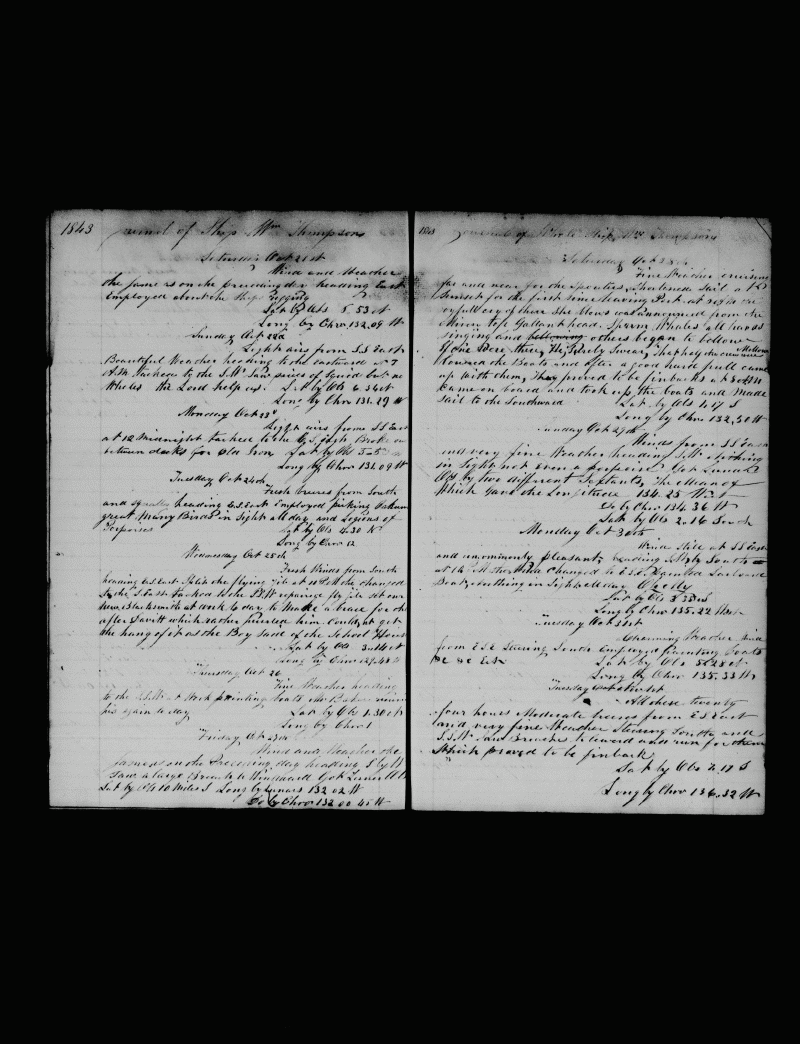 1843
Journal of Ship Wm Thompson
Saturday Oct 21st
Wind and Weather
the same as on the preceeding day heading East
Employed about the Ships Rigging
Lat by Obs 5.53 N
Long by Chro 132.09 W
Sunday Oct 22d
Light airs from S.S East
Beautiful Weather heading to the eastward at 7
A.M. tacked to the S.W. Saw pieces of Squid but no
Whales the Lord help us. Lat by Obs 6.34 N
Long by Chro 131.29 W
Monday Oct 23d
Light airs from SS East
at 12 Midnight tacked to the Broke
between decks for old Iron Lat by Obs
Long by Chro 131.09 W
Tuesday Oct 24th
Fresh breezes from South
and Squally heading E.S.East Employed picking Oakum
great Many Birds in Sight all day and Legions of
Porpoises Lat by Obs 4.30 N
Long by Chro
Wednesday Oct 25th
Fresh Winds from South
heading E.S.East Split the flying jib at 10 P.M. the changed
to the S.East tacked to the S.S.W repaired fly jib
Blacksmith at work to day to Make a brace for the
after Davitt which rather puzzled him Couldnt get
the hang of it as the Boy Said of the School House
Lat by Obs 3.14 N
Long by Chro 129.48 W
Thursday Oct 26
Fine Weather heading
to the S.S.W at Work painting boats Mr Baker
his again to day Lat by Obs 1.30 N
Long by Chro
Friday Oct 27th
Wind and Weather the
same as on the Preceeding day heading S by W
Saw a large Breach to Windward Got Lunar Obs
Lat by Obs 10 Miles S Long by Lunars 132 02 W
Do by Chro 132 00 45 W
1843
Journal of Whale Ship Wm Thompson
Saturday Oct 28th
Fine Weather cruising
far and near for the Spouters Shortened Sail at
Sunset for the first time leaving Port at eight the
joyful cry of there She blows was announced from the
Main top Gallant head. Sperm Whales all hands
singing and others began to bellow
If one there three, He Ruby Swear,
lowered the Boats and after a good hard pull came
up with them, They proved to be finbacks at
came on board and took up the boats and Made
Sail to the Southward Lat by Obs 1.17 S
Long by Chro 132.50 W
Sunday Oct 29th
Winds from SS East
and very fine Weather heading S.W. Nothing
in Sight not even a porpoise Got Lunar
Obs by two different Sextants, the Mean of
Which gave the Longitude 134.25 West
Do by Chro 134.36 W
Lat by Obs 2.16 South
Monday Oct 30th
Wind Still at SS East
and uncommonly pleasant, heading S.W by South
at 12 M the Wind Changed to E.S.E. Painted Larboard
Boat, Nothing in Sight all day
Lat by Obs
Long by Chro 135.22 West
Tuesday Oct 31st
Charming Weather Wind
from E.S.E Steering South Employed painting boats
&c &c Lat by Obs 5.28
Long by Chro 135.33 W
Tuesday Nov 1st
All these twenty
four hours Moderate breezes from ES East
and very fine Weather Steering South and
S.S.W. Saw Breaches to leeward and run for them
Which proved to be finback
Lat by Obs 7.17 S
Long by Chro 136.32 W